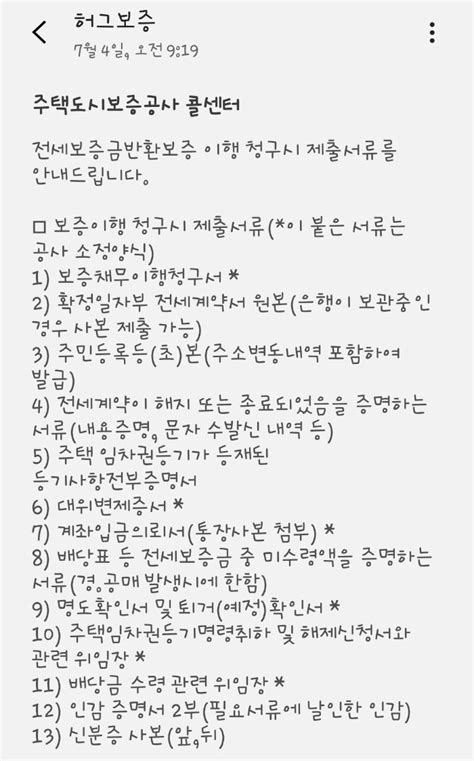 허그보증
7월 4일, 오전 9:19
주택도시보증공사 콜센터
전세보증금반환보증 이행 청구시 제출서류를
안내드립니다.
□ 보증이행 청구시 제출서류(*이 붙은 서류는
공사 소정양식)
1) 보증채무이행청구서 *
2) 확정일자부 전세계약서 원본(은행이 보관중인
경우 사본 제출 가능)
3) 주민등록등(초)본(주소변동내역 포함하여
발급)
4) 전세계약이 해지 또는 종료되었음을 증명하는
서류(내용증명, 문자 수발신 내역 등)
5) 주택 임차권등기가 등재된
등기사항전부증명서
6) 대위변제증서 *
7) 계좌입금의뢰서(통장사본 첨부) *
8) 배당표 등 전세보증금 중 미수령액을 증명하는
서류(경,공매 발생시에 한함)
9) 명도확인서 및 퇴거(예정)확인서 *
10) 주택임차권등기명령취하 및 해제신청서와
관련 위임장 *
11) 배당금 수령 관련 위임장 *
12) 인감 증명서 2부(필요서류에 날인한 인감)
13) 신분증 사본(앞,뒤)